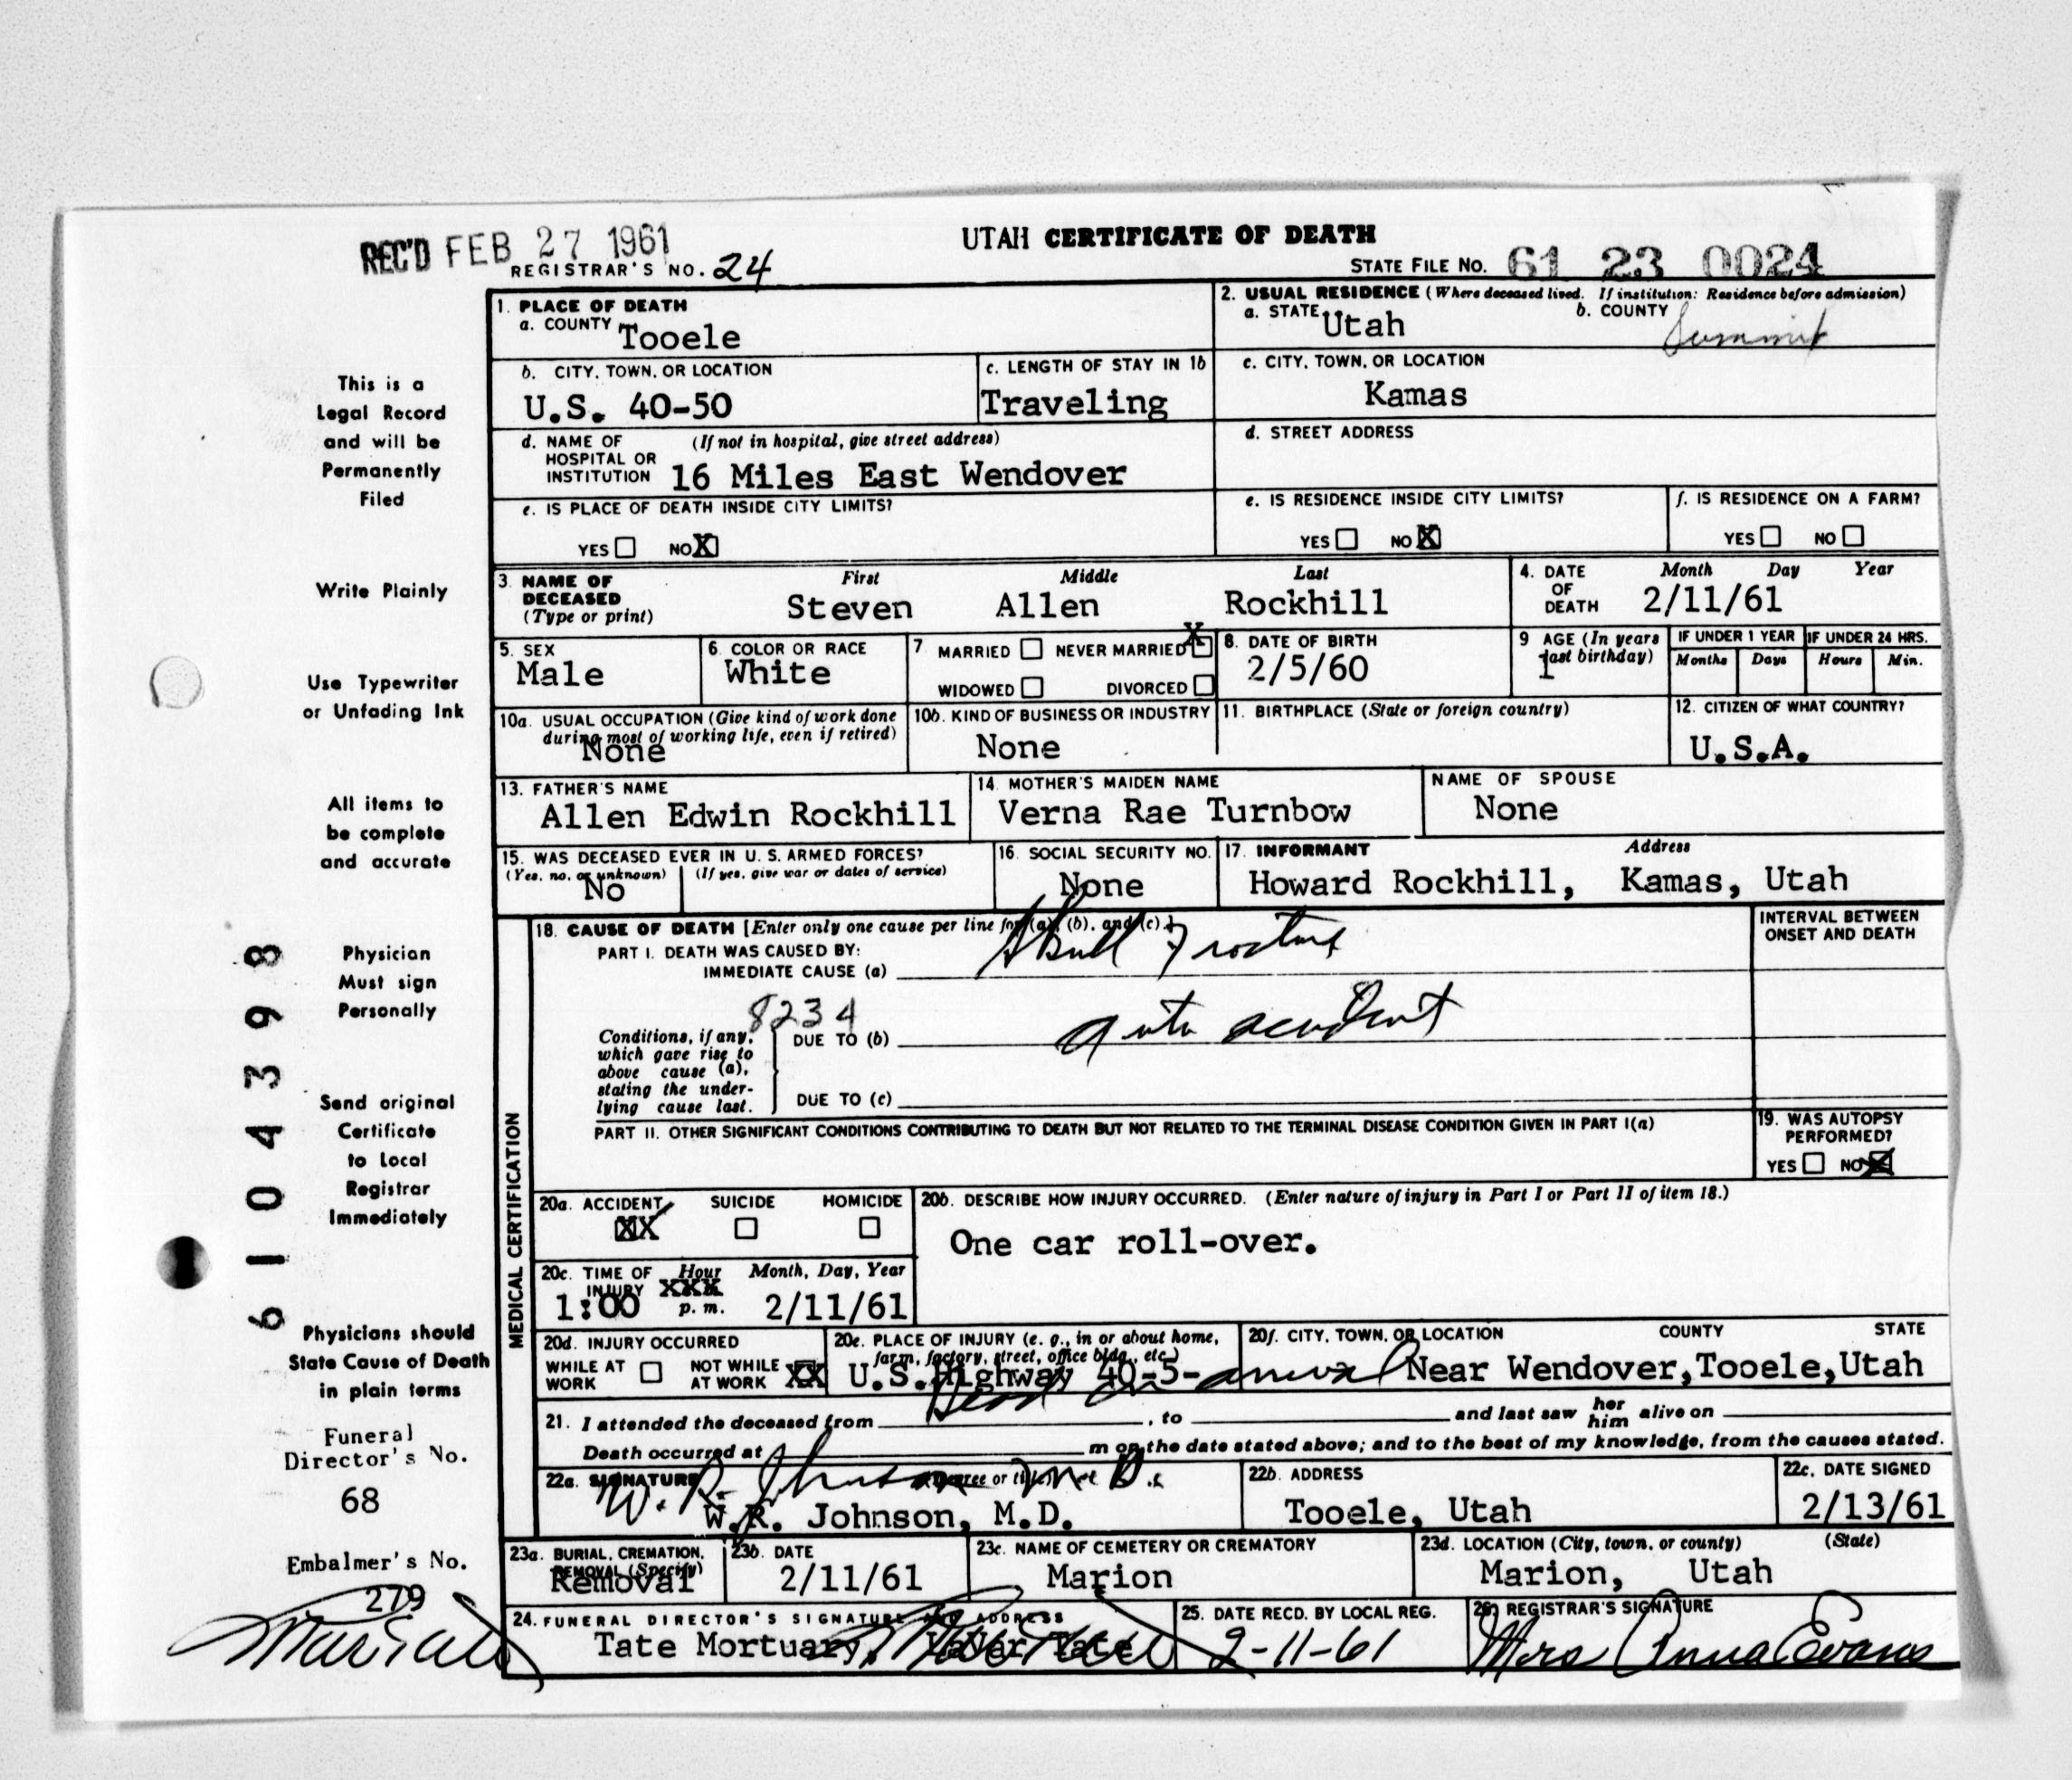 REC'D FEB 27 1961
UTAH CERTIFICATE OF DEATH
REGISTRAR'S NO. 24
STATE FILE No. 61 23 0024
This is a
Legal Record
and will be
Permanently
Filed
Write Plainly
Use Typewriter
or Unfading Ink
All items to
be complete
and accurate
Physician
Must sign
Personally
Send original
Certificate
to Local
Registrar
Immediately
Physicians should
State Cause of Death
in plain terms
Funeral
Director's No.
68
Embalmer's No.
279
6104398
1. PLACE OF DEATH
a. COUNTY Tooele
2. USUAL RESIDENCE (Where deceased lived. If institution: Residence before admission)
a. STATE Utah b. COUNTY Summit
b. CITY, TOWN, OR LOCATION
U.S. 40-50
c. LENGTH OF STAY IN 1b
Traveling
c. CITY, TOWN, OR LOCATION
Kamas
d. NAME OF (If not in hospital, give street address)
HOSPITAL OR
INSTITUTION 16 Miles East Wendover
d. STREET ADDRESS
e. IS PLACE OF DEATH INSIDE CITY LIMITS?
YES NO X
e. IS RESIDENCE INSIDE CITY LIMITS?
YES NO X
f. IS RESIDENCE ON A FARM?
YES NO
3. NAME OF DECEASED (Type or print)
First Middle Last
Steven Allen Rockhill
4. DATE OF DEATH
Month Day Year
2/11/61
5. SEX
Male
6. COLOR OR RACE
White
7 MARRIED NEVER MARRIED X
WIDOWED DIVORCED
8. DATE OF BIRTH
2/5/60
9 AGE (In years
last birthday)
1
IF UNDER 1 YEAR
Months Days
IF UNDER 24 HRS.
Hours Min.
10a. USUAL OCCUPATION (Give kind of work done
during most of working life, even if retired)
None
10b. KIND OF BUSINESS OR INDUSTRY
None
11. BIRTHPLACE (State or foreign country)
12. CITIZEN OF WHAT COUNTRY?
U.S.A.
13. FATHER'S NAME
Allen Edwin Rockhill
14. MOTHER'S MAIDEN NAME
Verna Rae Turnbow
NAME OF SPOUSE
None
15. WAS DECEASED EVER IN U. S. ARMED FORCES?
(Yes, no, or unknown) (If yes, give war or dates of service)
No
16. SOCIAL SECURITY NO.
None
17. INFORMANT Address
Howard Rockhill, Kamas, Utah
MEDICAL CERTIFICATION
18. CAUSE OF DEATH [Enter only one cause per line for (a), (b), and (c).]
PART I. DEATH WAS CAUSED BY:
IMMEDIATE CAUSE (a) Skull Fracture
INTERVAL BETWEEN
ONSET AND DEATH
8234
Conditions, if any,
which gave rise to
above cause (a),
stating the under-
lying cause last.
DUE TO (b) auto accident
DUE TO (c)
PART II. OTHER SIGNIFICANT CONDITIONS CONTRIBUTING TO DEATH BUT NOT RELATED TO THE TERMINAL DISEASE CONDITION GIVEN IN PART I(a)
19. WAS AUTOPSY
PERFORMED?
YES NO X
20a. ACCIDENT SUICIDE HOMICIDE
XX
20b. DESCRIBE HOW INJURY OCCURRED. (Enter nature of injury in Part I or Part II of item 18.)
One car roll-over.
20c. TIME OF INJURY
Hour Month, Day, Year
xxx
1:00 p. m. 2/11/61
20d. INJURY OCCURRED
WHILE AT WORK NOT WHILE AT WORK XX
20e. PLACE OF INJURY (e. g., in or about home,
farm, factory, street, office bldg., etc.)
U.S. Highway 40-5-
20f. CITY, TOWN, OR LOCATION COUNTY STATE
Near Wendover, Tooele, Utah
Dead on arrival
21. I attended the deceased from , to and last saw her him alive on
Death occurred at m on the date stated above; and to the best of my knowledge, from the causes stated.
22a. SIGNATURE (Degree or title)
W. R. Johnson M.D.
W.R. Johnson, M.D.
22b. ADDRESS
Tooele, Utah
22c. DATE SIGNED
2/13/61
23a. BURIAL, CREMATION,
REMOVAL (Specify)
Removal
23b. DATE
2/11/61
23c. NAME OF CEMETERY OR CREMATORY
Marion
23d. LOCATION (City, town, or county) (State)
Marion, Utah
24. FUNERAL DIRECTOR'S SIGNATURE AND ADDRESS
Tate Mortuary, Tate
25. DATE RECD. BY LOCAL REG.
2-11-61
26. REGISTRAR'S SIGNATURE
Mrs Anna Evans